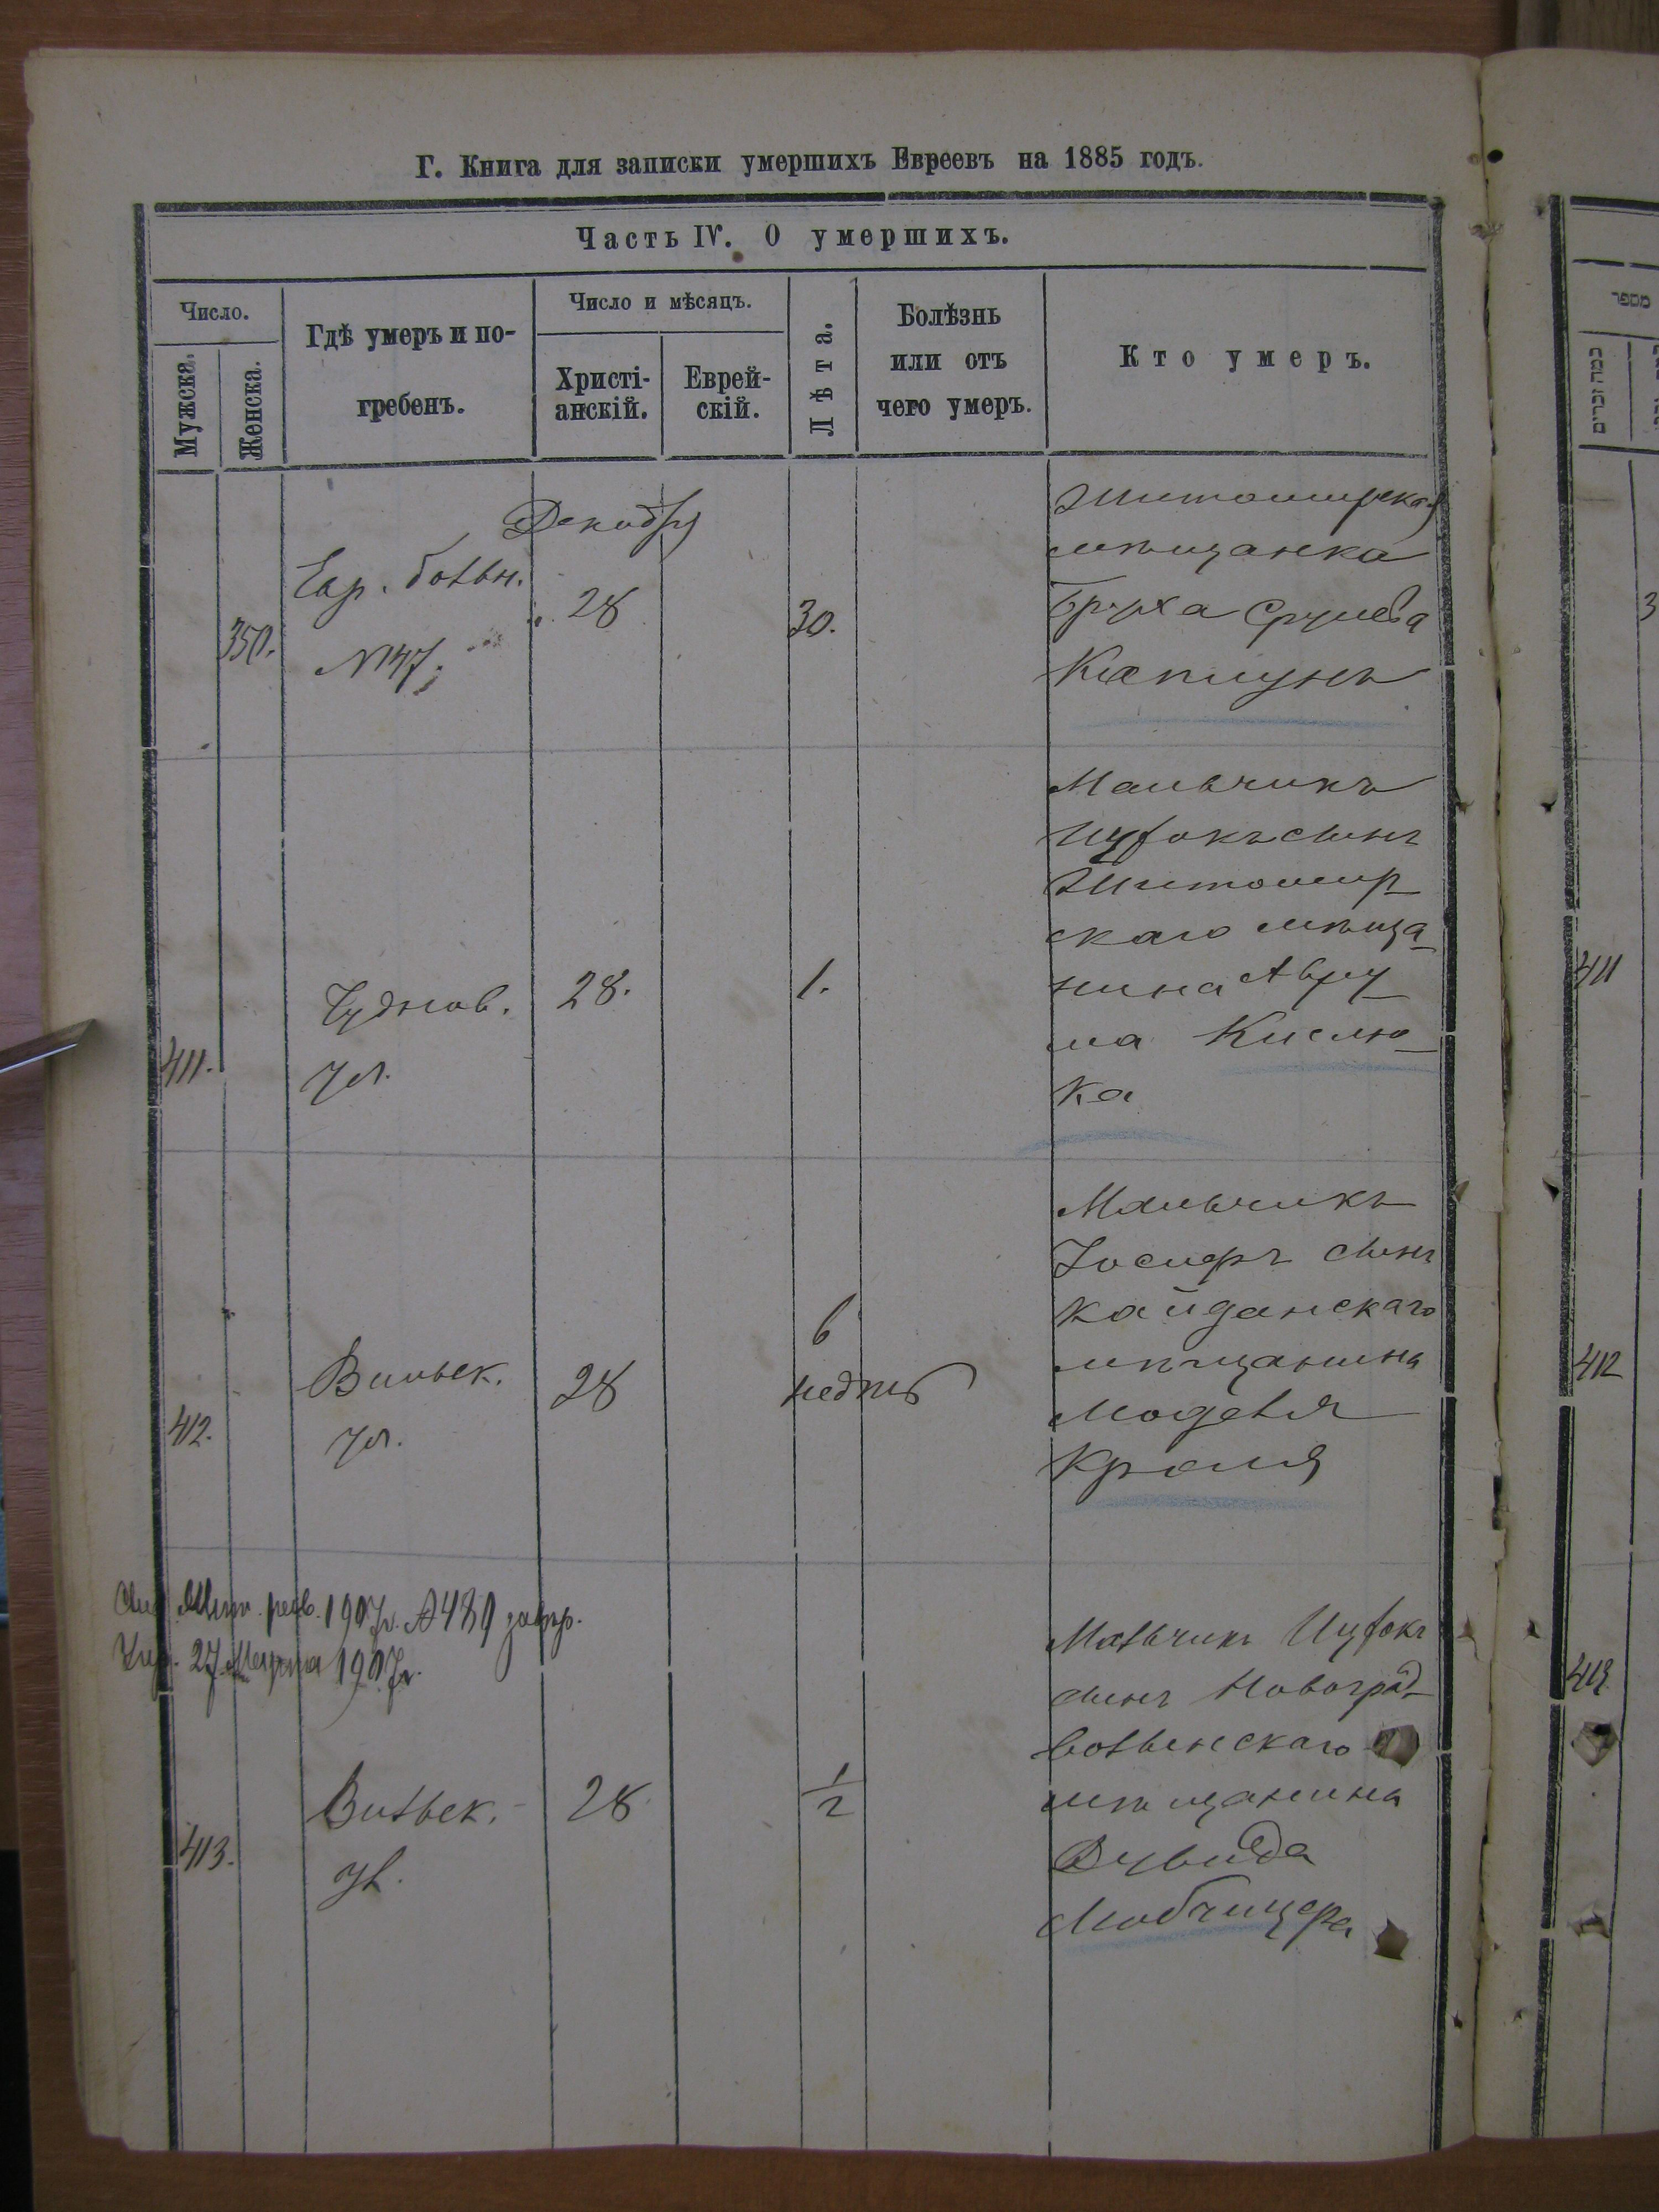 Г. Книга для записки умершихъ Евреевъ на 1885 годъ.
Часть IV. О умершихъ.
Число.
Мужска.
Женска.
Гдѣ умеръ и по-
гребенъ.
Число и мѣсяцъ.
Христі-
анскій.
Еврей-
скій.
Лѣта.
Болѣзнь
или отъ
чего умеръ.
Кто умеръ.
Декабря
350.
Евр. больн.
№47.
28
30.
Житомирская
мѣщанка
Бруха Срулева
Каплунъ
411.
Чуднов.
ул.
28.
1.
Мальчикъ
Ицхокъ сынъ
Житомир
скаго мѣща
нина Авру
ма Кислю
ка
412.
Вильск.
ул.
28
6
недѣль
Мальчикъ
Іосифъ сынъ
Кайданскаго
мѣщанина
Моделя
Кроля
1907г. №489
27 Марта 1907г.
413.
Вильск.
ул.
28
1/2
Мальчикъ Ицхокъ
сынъ Новоград
волынскаго
мѣщанина
Дувида
כמה זכרים
411
412
413